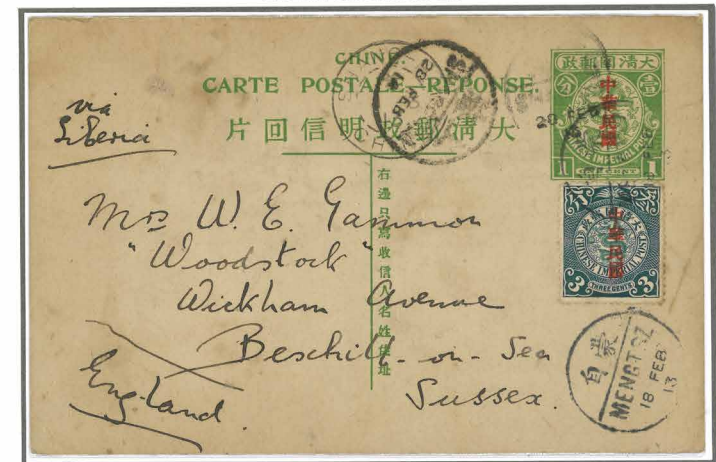 CHINE.
CARTE POSTALE-RÉPONSE.
片回信明政郵清大
右邊只寫收信人名姓住址
via
Siberia
Mrs W. E. Gammon
"Woodstock"
Wickham Avenue
Bexhill-on-Sea
Sussex.
England.
政郵國清大
分 壹
中華民國
CHINESE IMPERIAL POST
1 ONE CENT 1
中華民國
CHINESE IMPERIAL POST
3 THREE CENTS 3
20 FEB
自蒙
MENGTSZ
18 FEB
13